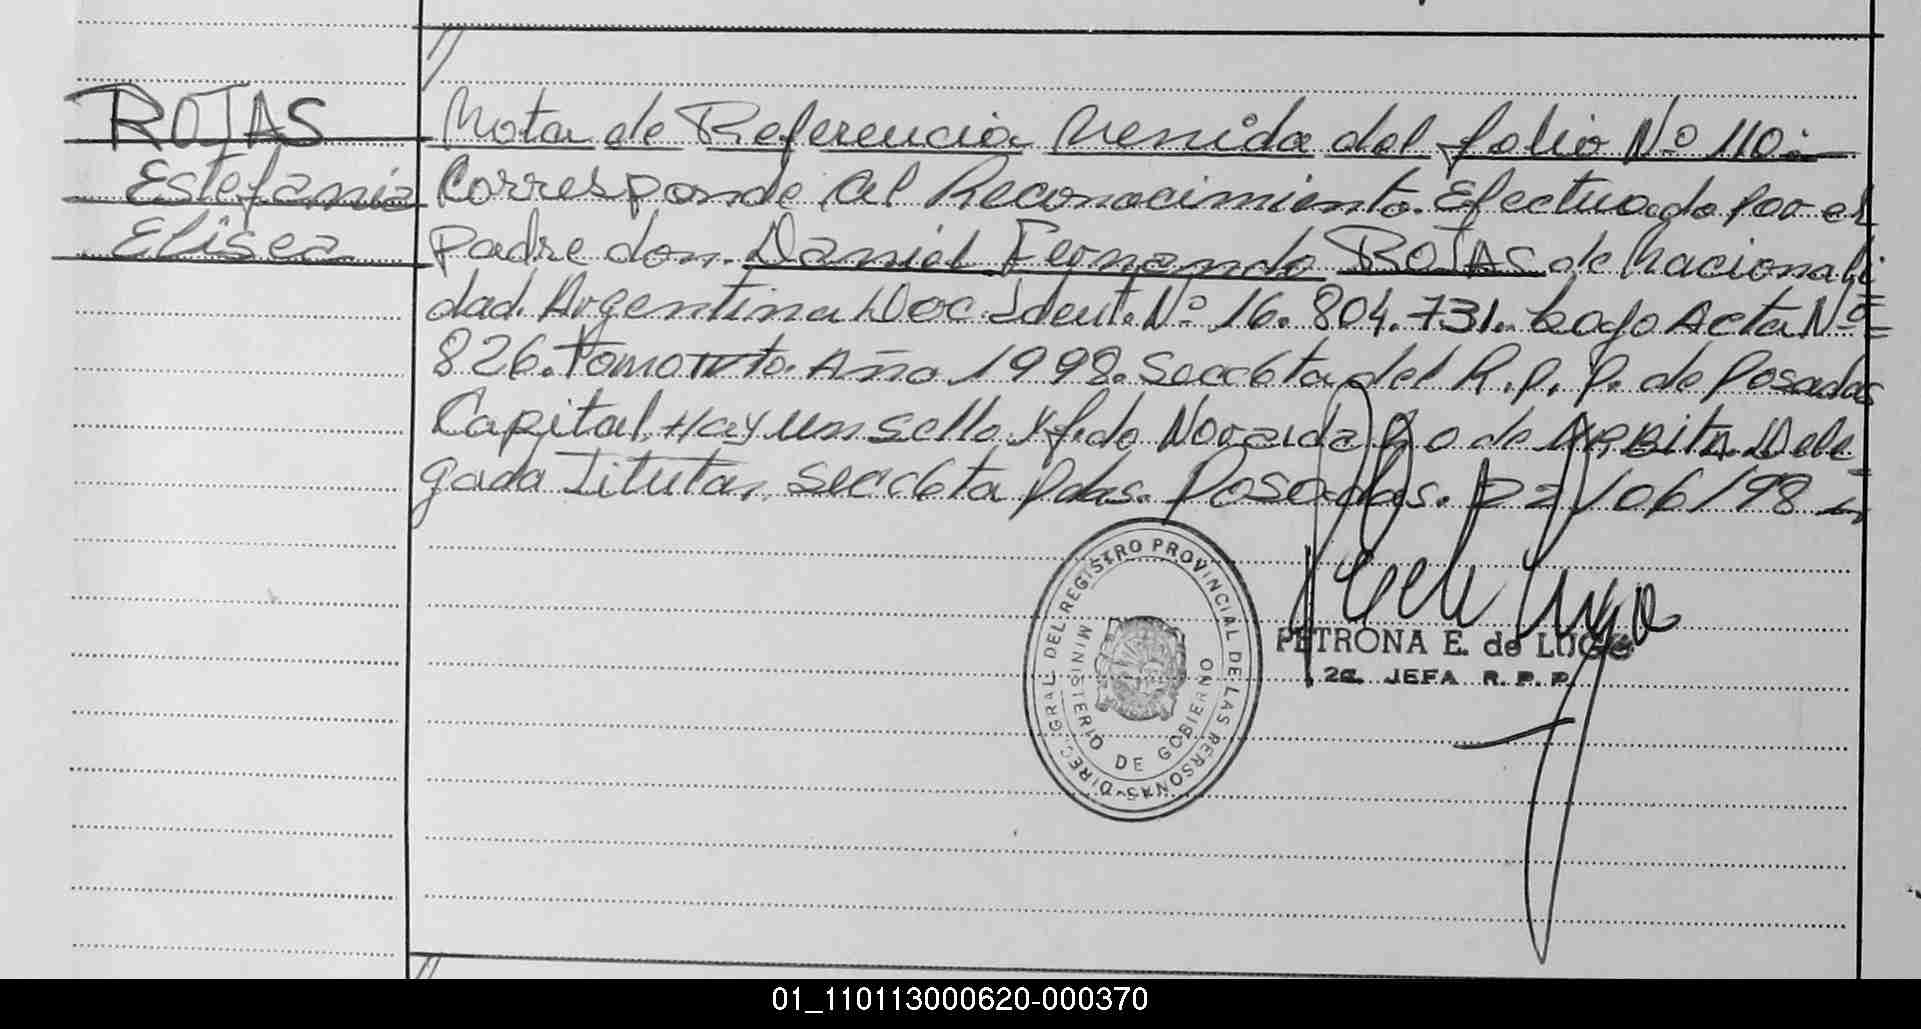 ROJAS
Estefania
Elisea
Nota de Referencia Venida del folio Nº 110.-
Corresponde al Reconocimiento. Efectuado por el
padre don. Daniel Fernando ROJAS de Nacionali
dad. Argentina Doc. Ident. Nº 16.804.731. bajo Acta Nº
826. Tomo Año 1998. Secc 6ta del R.P.P. de Posadas
Capital. Hay un sello y fdo de Delegada
Titular, Secc 6ta Pdas. Posadas. 22/06/98
DIREC. GRAL. DEL REGISTRO PROVINCIAL DE LAS PERSONAS
MINISTERIO DE GOBIERNO
PETRONA E. de LUGO
2a. JEFA R. P. P.
01_110113000620-000370